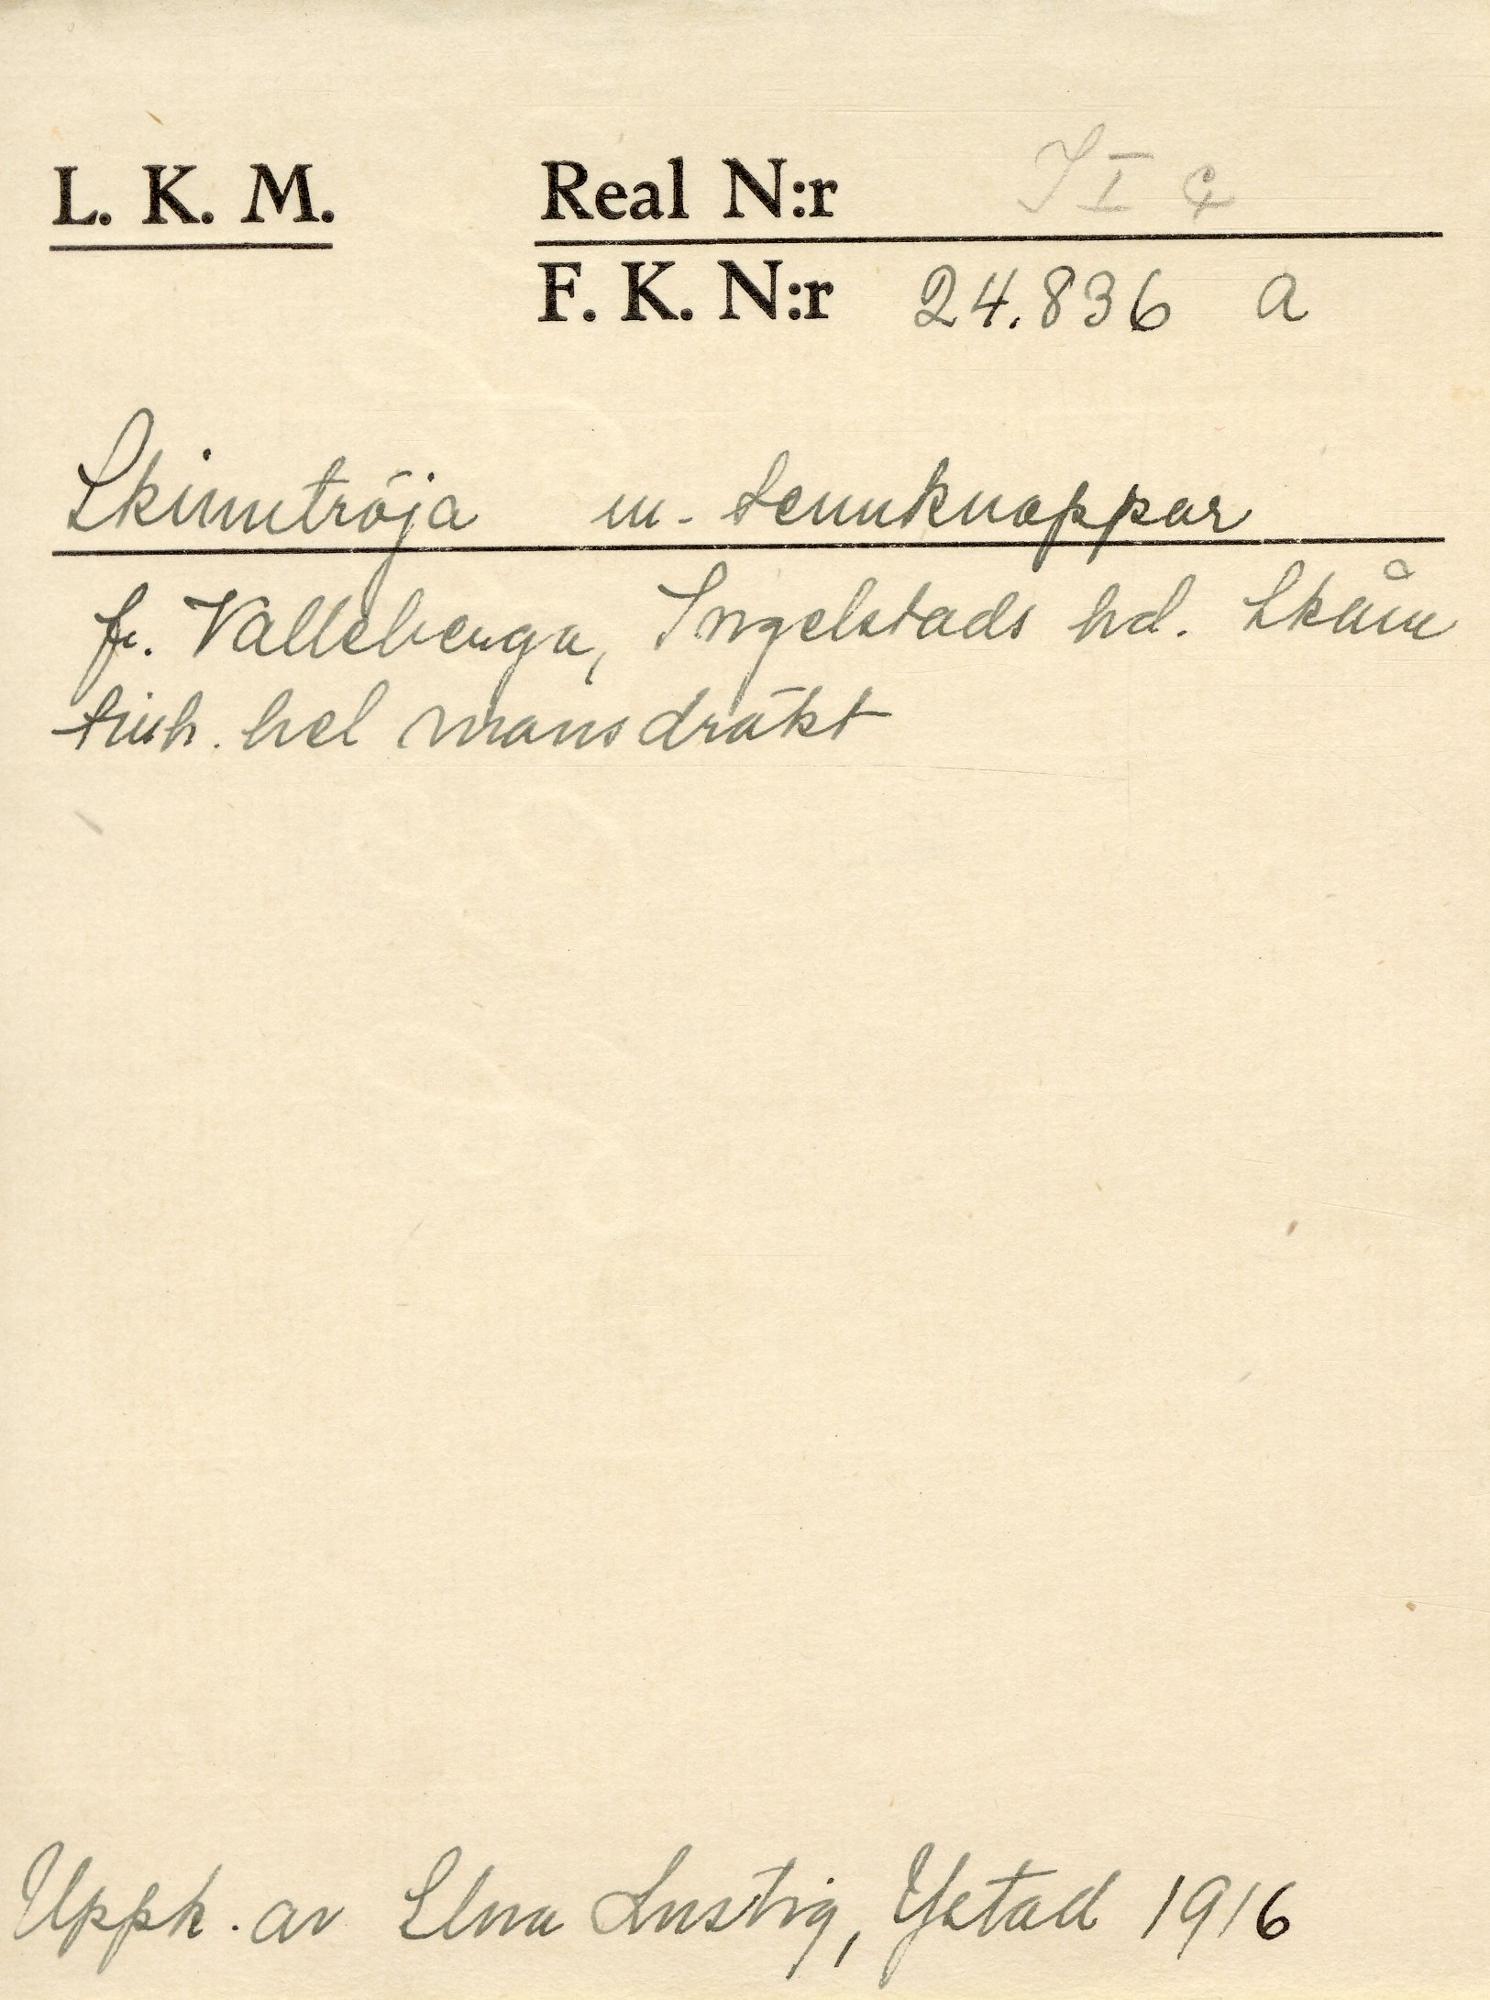 L. K. M. Real N:r I I
F. K. N:r 24.836 a
Skinntröja m. tennknappar
fr. Valleberga, Ingelstads hd. Skåne
tillh. hel mansdräkt
Uppk. av Elna Lustig, Ystad 1916